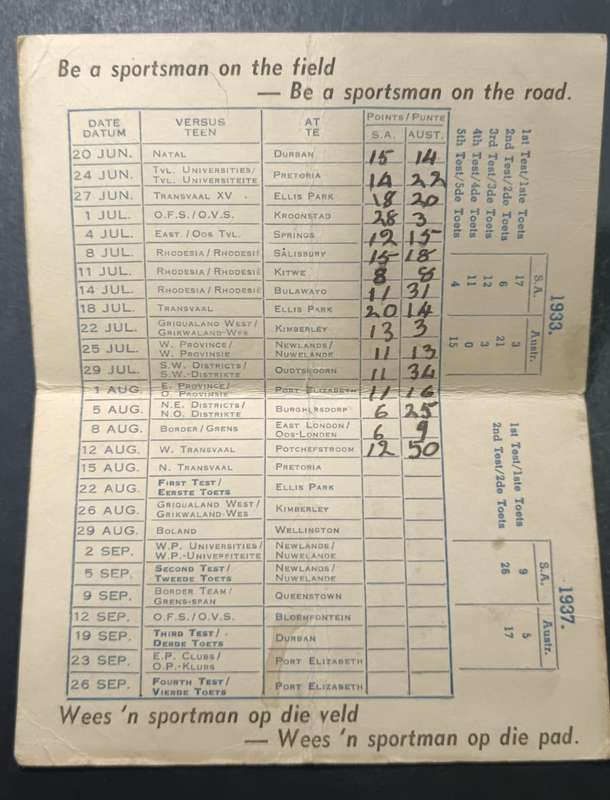 Be a sportsman on the field
— Be a sportsman on the road.
DATE DATUM VERSUS TEEN AT TE POINTS/PUNTE S.A. AUST.
20 JUN. NATAL DURBAN 15 14
24 JUN. TVL. UNIVERSITIES/ TVL. UNIVERSITEITE PRETORIA 14 22
27 JUN. TRANSVAAL XV ELLIS PARK 18 20
1 JUL. O.F.S./O.V.S. KROONSTAD 28 3
4 JUL. EAST/OOS TVL. SPRINGS 12 15
8 JUL. RHODESIA/RHODESIË SALISBURY 15 18
11 JUL. RHODESIA/RHODESIË KITWE 8 8
14 JUL. RHODESIA/RHODESIË BULAWAYO 11 31
18 JUL. TRANSVAAL ELLIS PARK 20 14
22 JUL. GRIQUALAND WEST/ GRIKWALAND-WES KIMBERLEY 13 3
25 JUL. W. PROVINCE/ W. PROVINSIE NEWLANDS/ NUWELANDE 11 13
29 JUL. S.W. DISTRICTS/ S.W.-DISTRIKTE OUDTSHOORN 11 34
1 AUG. E. PROVINCE/ O. PROVINSIE PORT ELIZABETH 11 16
5 AUG. N.E. DISTRICTS/ N.O. DISTRIKTE BURGHERSDORP 6 25
8 AUG. BORDER/GRENS EAST LONDON/ OOS-LONDEN 6 9
12 AUG. W. TRANSVAAL POTCHEFSTROOM 12 50
15 AUG. N. TRANSVAAL PRETORIA
22 AUG. FIRST TEST/ EERSTE TOETS ELLIS PARK
26 AUG. GRIQUALAND WEST/ GRIKWALAND-WES KIMBERLEY
29 AUG. BOLAND WELLINGTON
2 SEP. W.P. UNIVERSITIES/ W.P.-UNIVERSITEITE NEWLANDS/ NUWELANDE
5 SEP. SECOND TEST/ TWEEDE TOETS NEWLANDS/ NUWELANDE
9 SEP. BORDER TEAM/ GRENS-SPAN QUEENSTOWN
12 SEP. O.F.S./O.V.S. BLOEMFONTEIN
19 SEP. THIRD TEST/ DERDE TOETS DURBAN
23 SEP. E.P. CLUBS/ O.P.-KLUBS PORT ELIZABETH
26 SEP. FOURTH TEST/ VIERDE TOETS PORT ELIZABETH
1933.
S.A. Austr.
1st Test/1ste Toets 17 3
2nd Test/2de Toets 6 21
3rd Test/3de Toets 12 3
4th Test/4de Toets 11 0
5th Test/5de Toets 4 15
1937.
S.A. Austr.
1st Test/1ste Toets 9 5
2nd Test/2de Toets 26 17
Wees 'n sportman op die veld
— Wees 'n sportman op die pad.